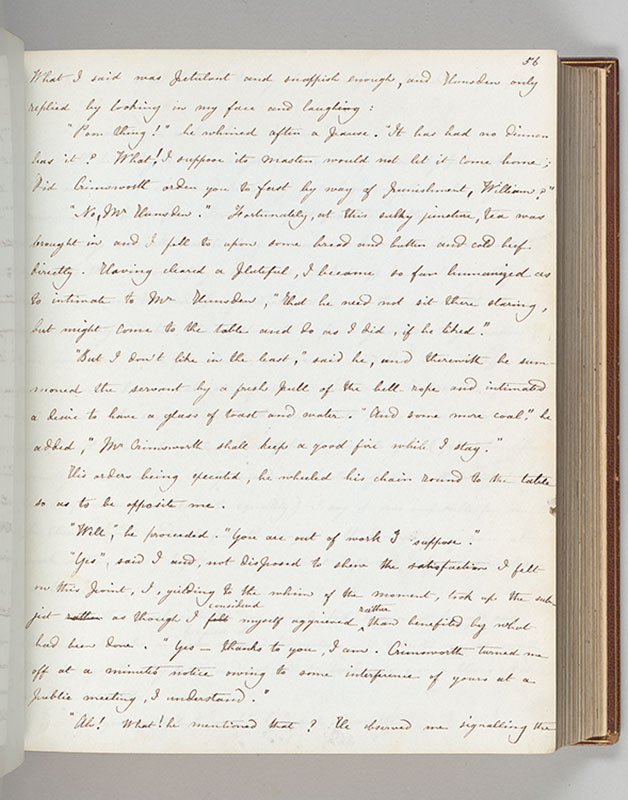 56
What I said was petulant and snappish enough, and Hunsden only
replied by looking in my face and laughing:
"Poor thing!" he whined after a pause. "It has had no dinner
has it? What! I suppose its master would not let it come home;
Did Crimsworth order you to fast by way of punishment, William?"
"No, Mr Hunsden." Fortunately, at this sulky juncture, tea was
brought in and I fell to upon some bread and butter and cold beef
directly. Having cleared a plateful, I became so far humanized as
to intimate to Mr Hunsden, "that he need not sit there staring,
but might come to the table and do as I did, if he liked."
"But I don't like in the least," said he, and therewith he sum-
moned the servant by a fresh pull of the bell-rope and intimated
a desire to have a glass of toast and water. "And some more coal" he
added, "Mr Crimsworth shall keep a good fire while I stay."
His orders being executed, he wheeled his chair round to the table
so as to be opposite me.
"Well," he proceeded. "You are out of work I suppose."
"Yes", said I and, not disposed to shew the satisfaction I felt
on this point, I, yielding to the whim of the moment, took up the sub-
considered rather
ject rather as though I felt myself aggrieved, than benefited by what
had been done. "Yes — thanks to you, I am. Crimsworth turned me
off at a minutes notice owing to some interference of yours at a
public meeting, I understand."
"Ah! What! he mentioned that? He observed me signalling the